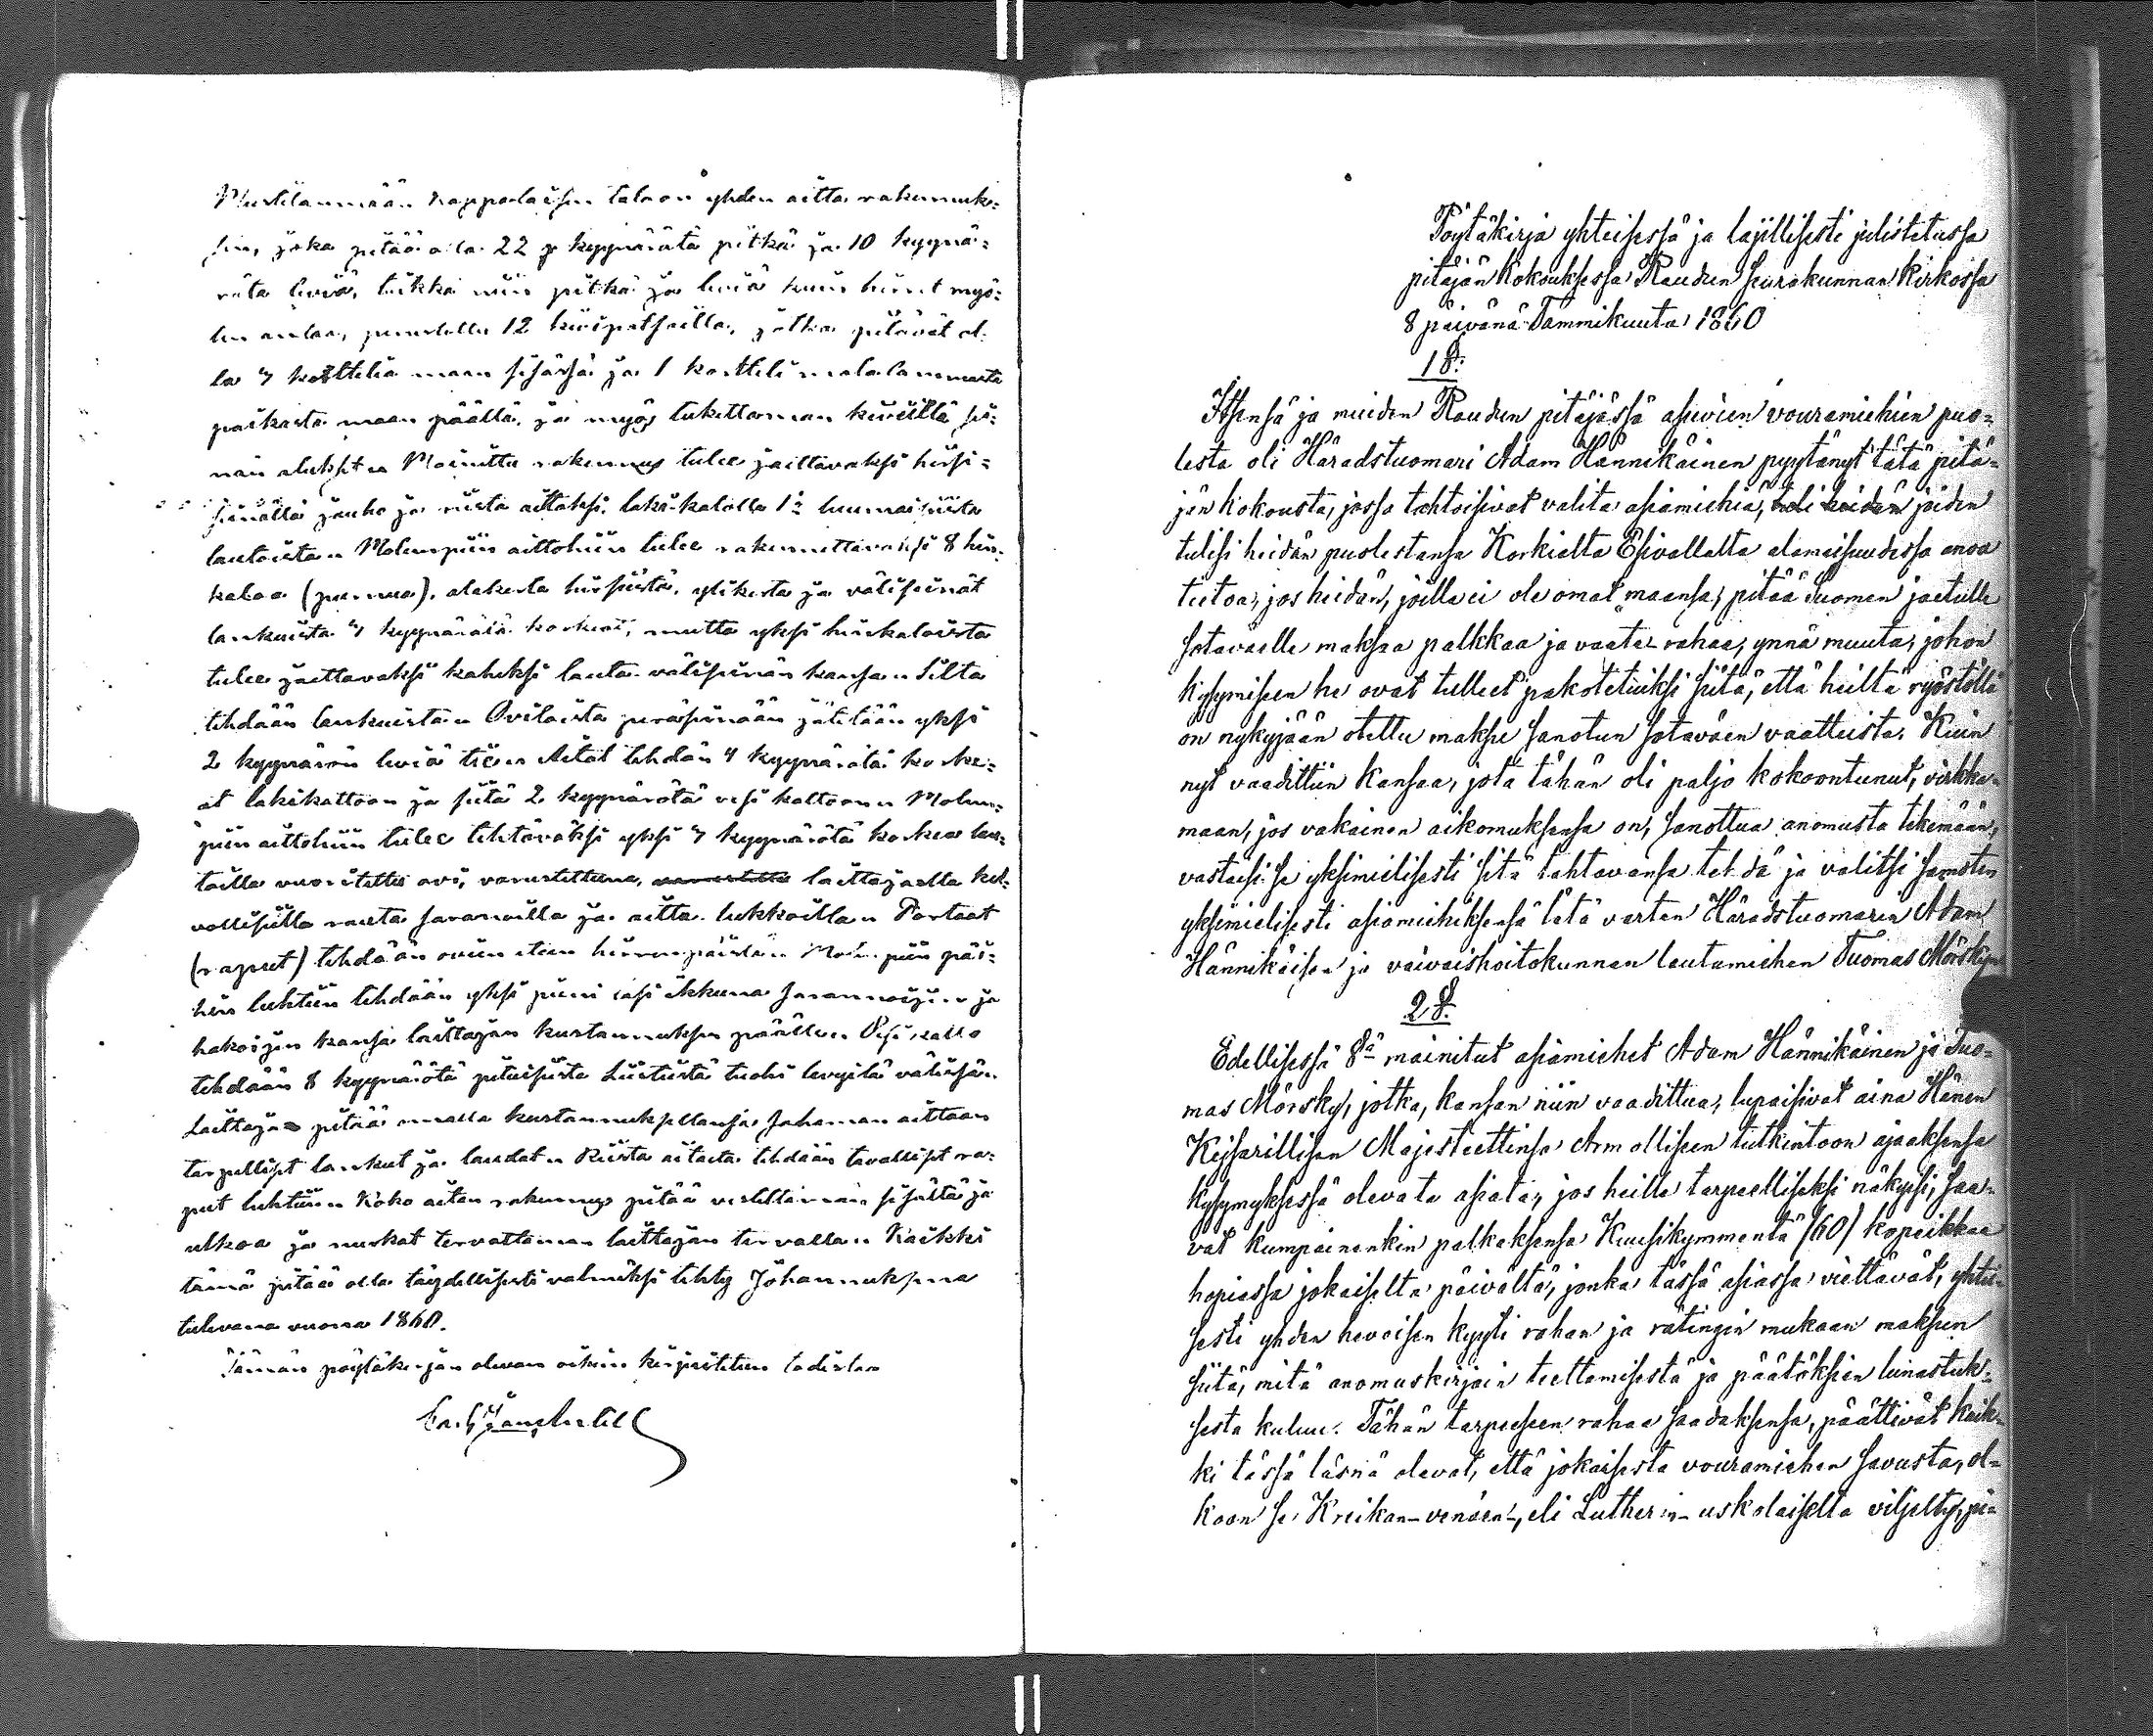 Mustilanmään Kappalaisen taloon yhden aitta rakennuk-
sen, joka pitää olla 22 kyynärätä pitkä ja 10 kyynä-
rätä leviä, tukka niin pitkä ja leviä kuin hirret myö-
den antaa, perustettu 12 kivipatsailla, jotka pitävät ol-
la 4 korttelia maan sisässä ja 1 kortteli matalammasta
paikasta maan päällä, ja myös tukettaman kivillä sei-
nän alukset. Mainittu rakennus tulee jaettavaksi hirsi-
seinällä jauho ja riista aittaksi, laki-katolla 1ä tuumaisista
lautoista. Molempiin aittohin tulee rakennettavaksi 8 hin-
kaloa (purnua), alakerta hirsistä, ylikerta ja väliseinät
lankuista 4 kyynärätä korkeat, mutta yksi hinkaloista
tulee jaettavaksi kaheksi lauta-väliseinän kanssa. Silta
tehdään lankuista. Oviloista peräseinään jätetään yksi
2 kyynärän leviä tie. Aitat tehdän 4 kyynärätä korke-
at lakikattoon ja siitä 2 kyynärätä vesi kattoon. Molem-
piin aittohin tulee tehtäväksi yksi 4 kyynärätä korkea lau-
toilla vuoritettu ovi, varustettuna, laittajalta kel-
vollisilla rauta saranoilla ja aitta lukkoilla. Portaat
(raput) tehdään ovien eteen hirrenpäistä. Molempiin päi-
hin luhtiin tehdään yksi pieni lasi ikkuna sarannoijen ja
hakoijen kansa laittajan kustannuksen päälle. Vesi katto
tehdään 8 kyynärätä pituisista liistuistä tuohi levyilä välissän.
Laittaja pitää omalla kustannuksellansa sahaman aittaan
tarpelliset lankut ja laudat. Riista aitasta tehdään tavalliset ra-
put luhtiin. Koko aitan rakennus pitää vestettämän sisältä ja
ulkoa ja nurkat tervattaman laittajan tervalla. Kaikki
tämä pitää olla täydellisesti valmiiksi tehty Johannuksena
tulevana vuonna 1860.
Tämän pöytäkirjan olevan oikein kirjoitetun todistaa

Pöytäkirja yhteisessä ja lajillisesti julistetussa
pitäjän kokouksessa Raudun seurakunnan kirkossa
8 päivänä Tammikuuta 1860
1 §.
Itsensä ja muiden Raudun pitäjässä asuvien vouramiehien puo-
lesta oli Häradstuomari Adam Hännikäinen pyytänyt tätä pitä-
jän kokousta, jossa tahtoisivat valita asiamiehiä, joiden
tulisi heidän puolestansa Korkialta Esivallalta alamaisuudessa anoa
tietoa, jos heidän, joilla ei ole omat maansa, pitää Suomen jaetulle
sotaväelle maksaa palkkaa ja vaate-rahaa, ynnä muuta, johon
kysymiseen he ovat tulleet pakotetuiksi siitä, että heiltä ryöstöllä
on nykyjään otettu maksu sanotun sotaväen vaatteista. Kuin
nyt vaadittiin kansaa, jota tähän oli paljo kokoontunut, virkka-
maan, jos vakainen aikomuksensa on, sanottua anomusta tekemään,
vastaisi se yksimielisesti sitä tahtovansa tehdä ja valitsi samoten
yksimielisesti asiamiehiksensä tätä varten Häradstuomarin Adam
Hännikäisen ja vaivaishoitokunnan lautamiehen Tuomas Mörskyn
2 §.
Edellisessä §ä mainitut asiamiehet Adam Hännikäinen ja Tuo-
mas Mörsky, jotka, kansan niin vaadittua, lupaisivat aina Hänen
Keisarillisen Majesteettinsa Armollisen tutkintoon ajaaksensa
kysymyksessä olevata asiata, jos heille tarpeelliseksi näkyisi, saa-
vat kumpainenkin palkaksensa Kuusikymmentä (60) kopeikkaa
hopiassa jokaiselta päivältä, jonka tässä asiassa viettävät, yhtei-
sesti yhden hevoisen kyyti rahan ja rätingin mukaan maksun
siitä, mitä anomuskirjain teettämisestä ja päätöksien lunastuk-
sesta kuluu. Tähän tarpeeseen rahaa saadaksensa, päättivät kaik-
ki tässä läsnä olevat, että jokaisesta vouramiehen savusta, ol-
koon se Kreikan-venäen-, eli Lutherin-uskolaiselta viljelty, pi-